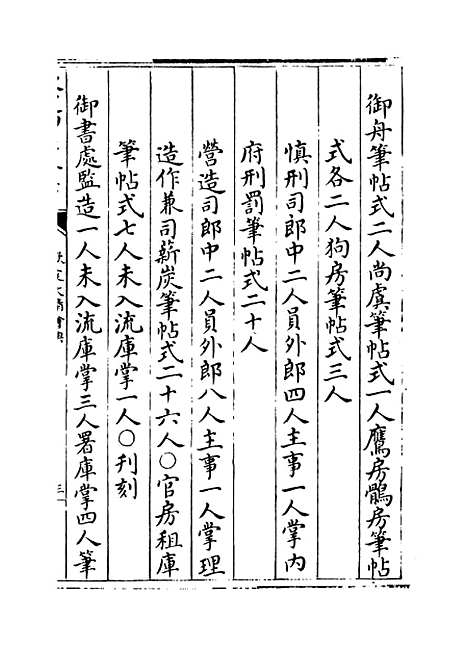 御舟筆帖式二人尚虞筆帖式一人鷹房鶻房筆帖
式各二人狗房筆帖式三人
慎刑司郎中二人員外郎四人主事一人掌内
府刑罰筆帖式二十人
營造司郎中二人員外郎八人主事一人掌理
造作兼司薪炭筆帖式二十六人〇官房租庫
筆帖式七人未入流庫掌一人〇刋刻
御書處監造一人未入流庫掌三人署庫掌四人筆
欽定大清會典